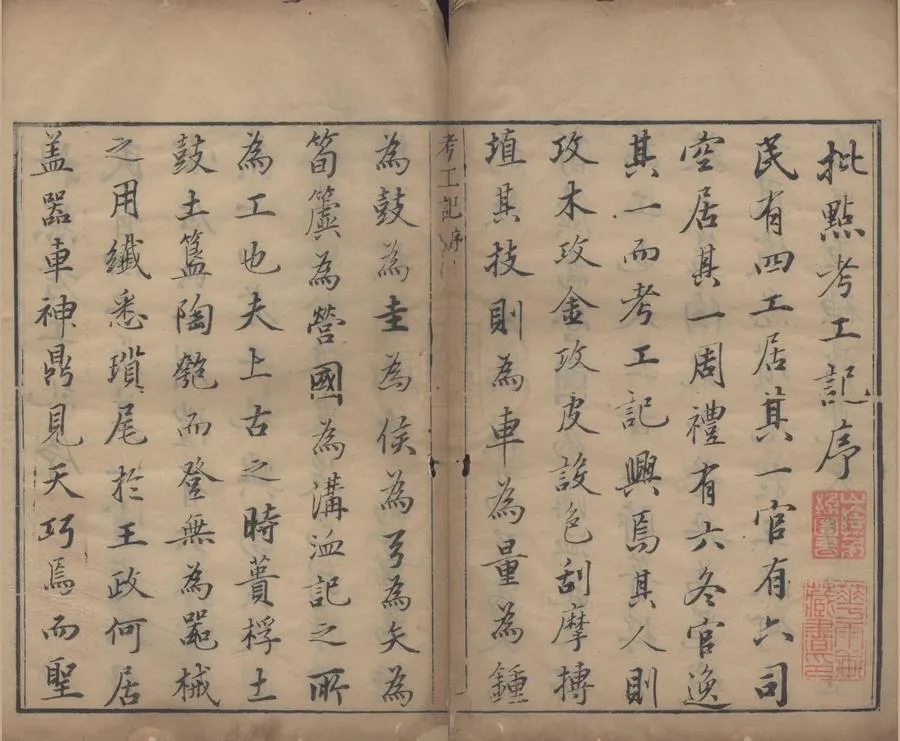 批點考工記序
民有四工居其一官有六司
空居其一周禮有六冬官逸
其一而考工記興焉其人則
攻木攻金攻皮設色刮摩摶
埴其技則為車為量為鍾
考工記序
為鼓為圭為侯為弓為矢為
筍簴為營國為溝洫記之所
為工也夫上古之時蕢桴土
鼓土簋陶匏而登無為器械
之用纖悉瑣尾於王政何居
盖器車神鼎見天巧焉而聖